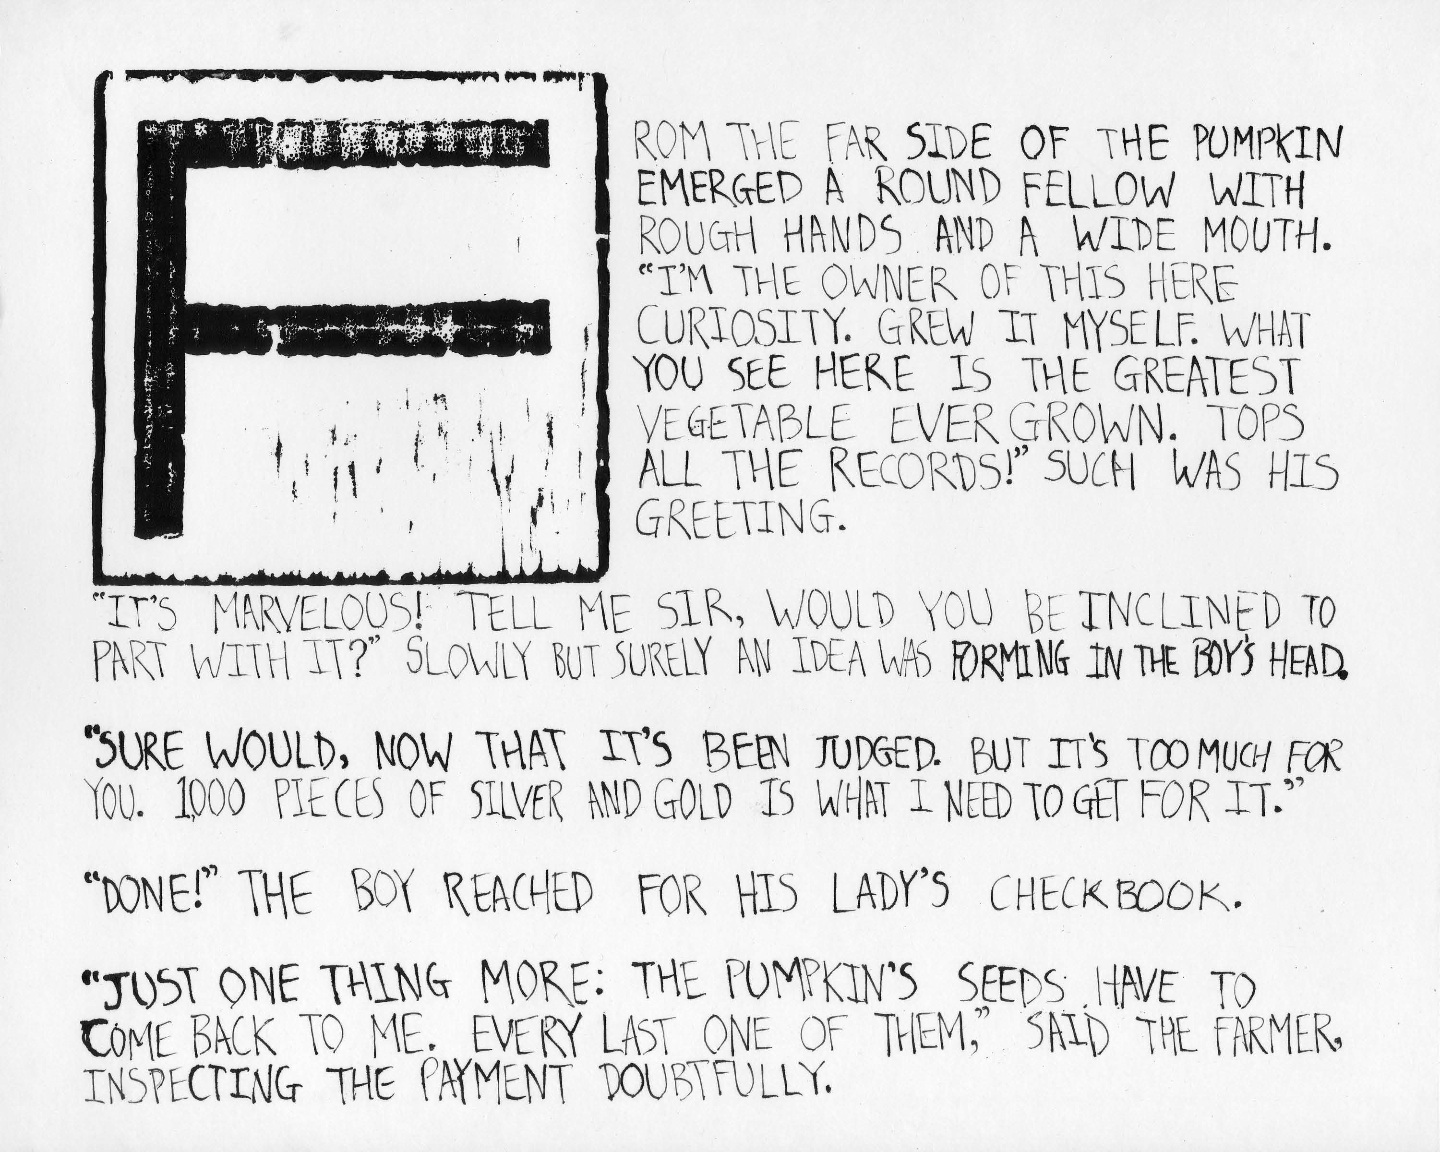 FROM THE FAR SIDE OF THE PUMPKIN
EMERGED A ROUND FELLOW WITH
ROUGH HANDS AND A WIDE MOUTH.
“I’M THE OWNER OF THIS HERE
CURIOSITY. GREW IT MYSELF. WHAT
YOU SEE HERE IS THE GREATEST
VEGETABLE EVER GROWN. TOPS
ALL THE RECORDS!” SUCH WAS HIS
GREETING.
“IT’S MARVELOUS! TELL ME SIR, WOULD YOU BE INCLINED TO
PART WITH IT?” SLOWLY BUT SURELY AN IDEA WAS FORMING IN THE BOY’S HEAD.
“SURE WOULD, NOW THAT IT’S BEEN JUDGED. BUT IT’S TOO MUCH FOR
YOU. 1,000 PIECES OF SILVER AND GOLD IS WHAT I NEED TO GET FOR IT.”
“DONE!” THE BOY REACHED FOR HIS LADY’S CHECKBOOK.
“JUST ONE THING MORE: THE PUMPKIN’S SEEDS HAVE TO
COME BACK TO ME. EVERY LAST ONE OF THEM,” SAID THE FARMER,
INSPECTING THE PAYMENT DOUBTFULLY.